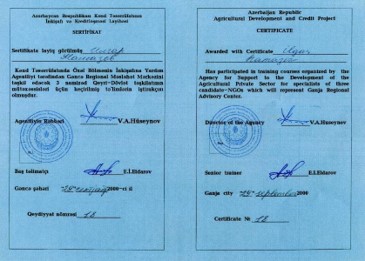 Azərbaycan Respublikası Kənd Təsərrüfatının
İnkişafı və Kreditləşməsi Layihəsi
SERTİFİKAT
Sertifikatla təyin olunmuş
Kənd Təsərrüfatında Özəl Bölmənin İnkişafına Yardım
Agentliyi tərəfindən Gəncə Regional Məsləhət Mərkəzini
təşkil edəcək 3 namizəd Qeyri-Dövlət təşkilatının
mütəxəssisləri üçün keçirilmiş təlimlərin iştirakçısı
olmuşdur.
Agentliyin Rəhbəri V.A.Hüseynov
Baş təlimatçı E.İ.Eldarov
Gəncə şəhəri 2006-cı il
Qeydiyyat nömrəsi 12
Azerbaijan Republic
Agricultural Development and Credit Project
CERTIFICATE
Awarded with Certificate
Has participated in training courses organized by the
Agency for Support to the Development of the
Agricultural Private Sector for specialists of three
candidate-NGOs which will represent Ganja Regional
Advisory Center.
Director of the Agency V.A.Hüseynov
Senior trainer E.İ.Eldarov
Ganja city september 2006
Certificate № 12